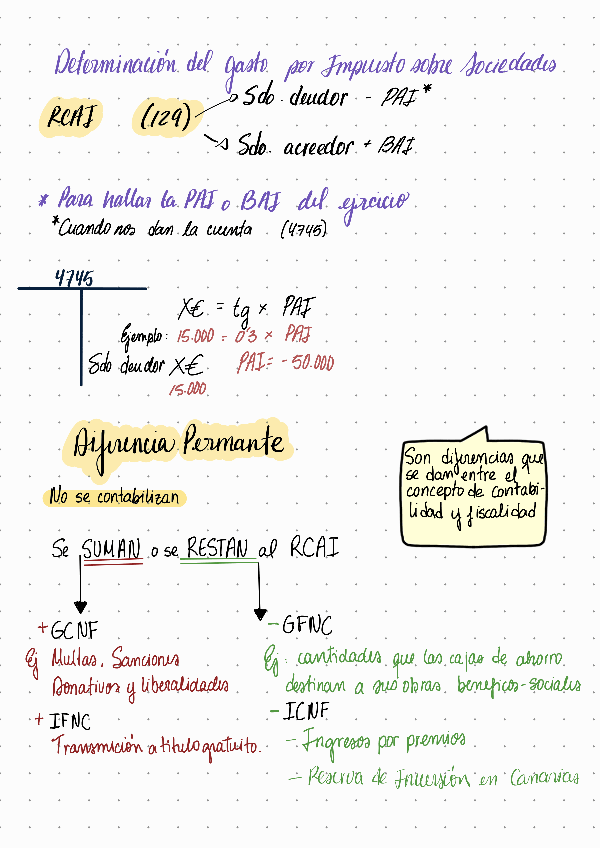 Determinación del gasto por Impuesto sobre Sociedades
RCAI (129) Sdo. deudor - PAI*
Sdo. acreedor + BAI
* Para hallar la PAI o BAI del ejercicio
*Cuando nos dan la cuenta (4745)
4745
X€ = tg x PAI
Ejemplo: 15.000 = 0'3 x PAI
Sdo deudor X€ PAI = - 50.000
15.000
Diferencia Permante
No se contabilizan
Son diferencias que
se dan entre el
concepto de contabi-
lidad y fiscalidad
Se SUMAN o se RESTAN al RCAI
+ GCNF
Ej Multas, Sanciones
Donativos y liberalidades
+ IFNC
Transmición a titulo gratuito.
- GFNC
Ej: cantidades que las cajas de ahorro
destinan a sus obras beneficos-sociales
- ICNF
- Ingresos por premios
- Reserva de Inversión en Canarias